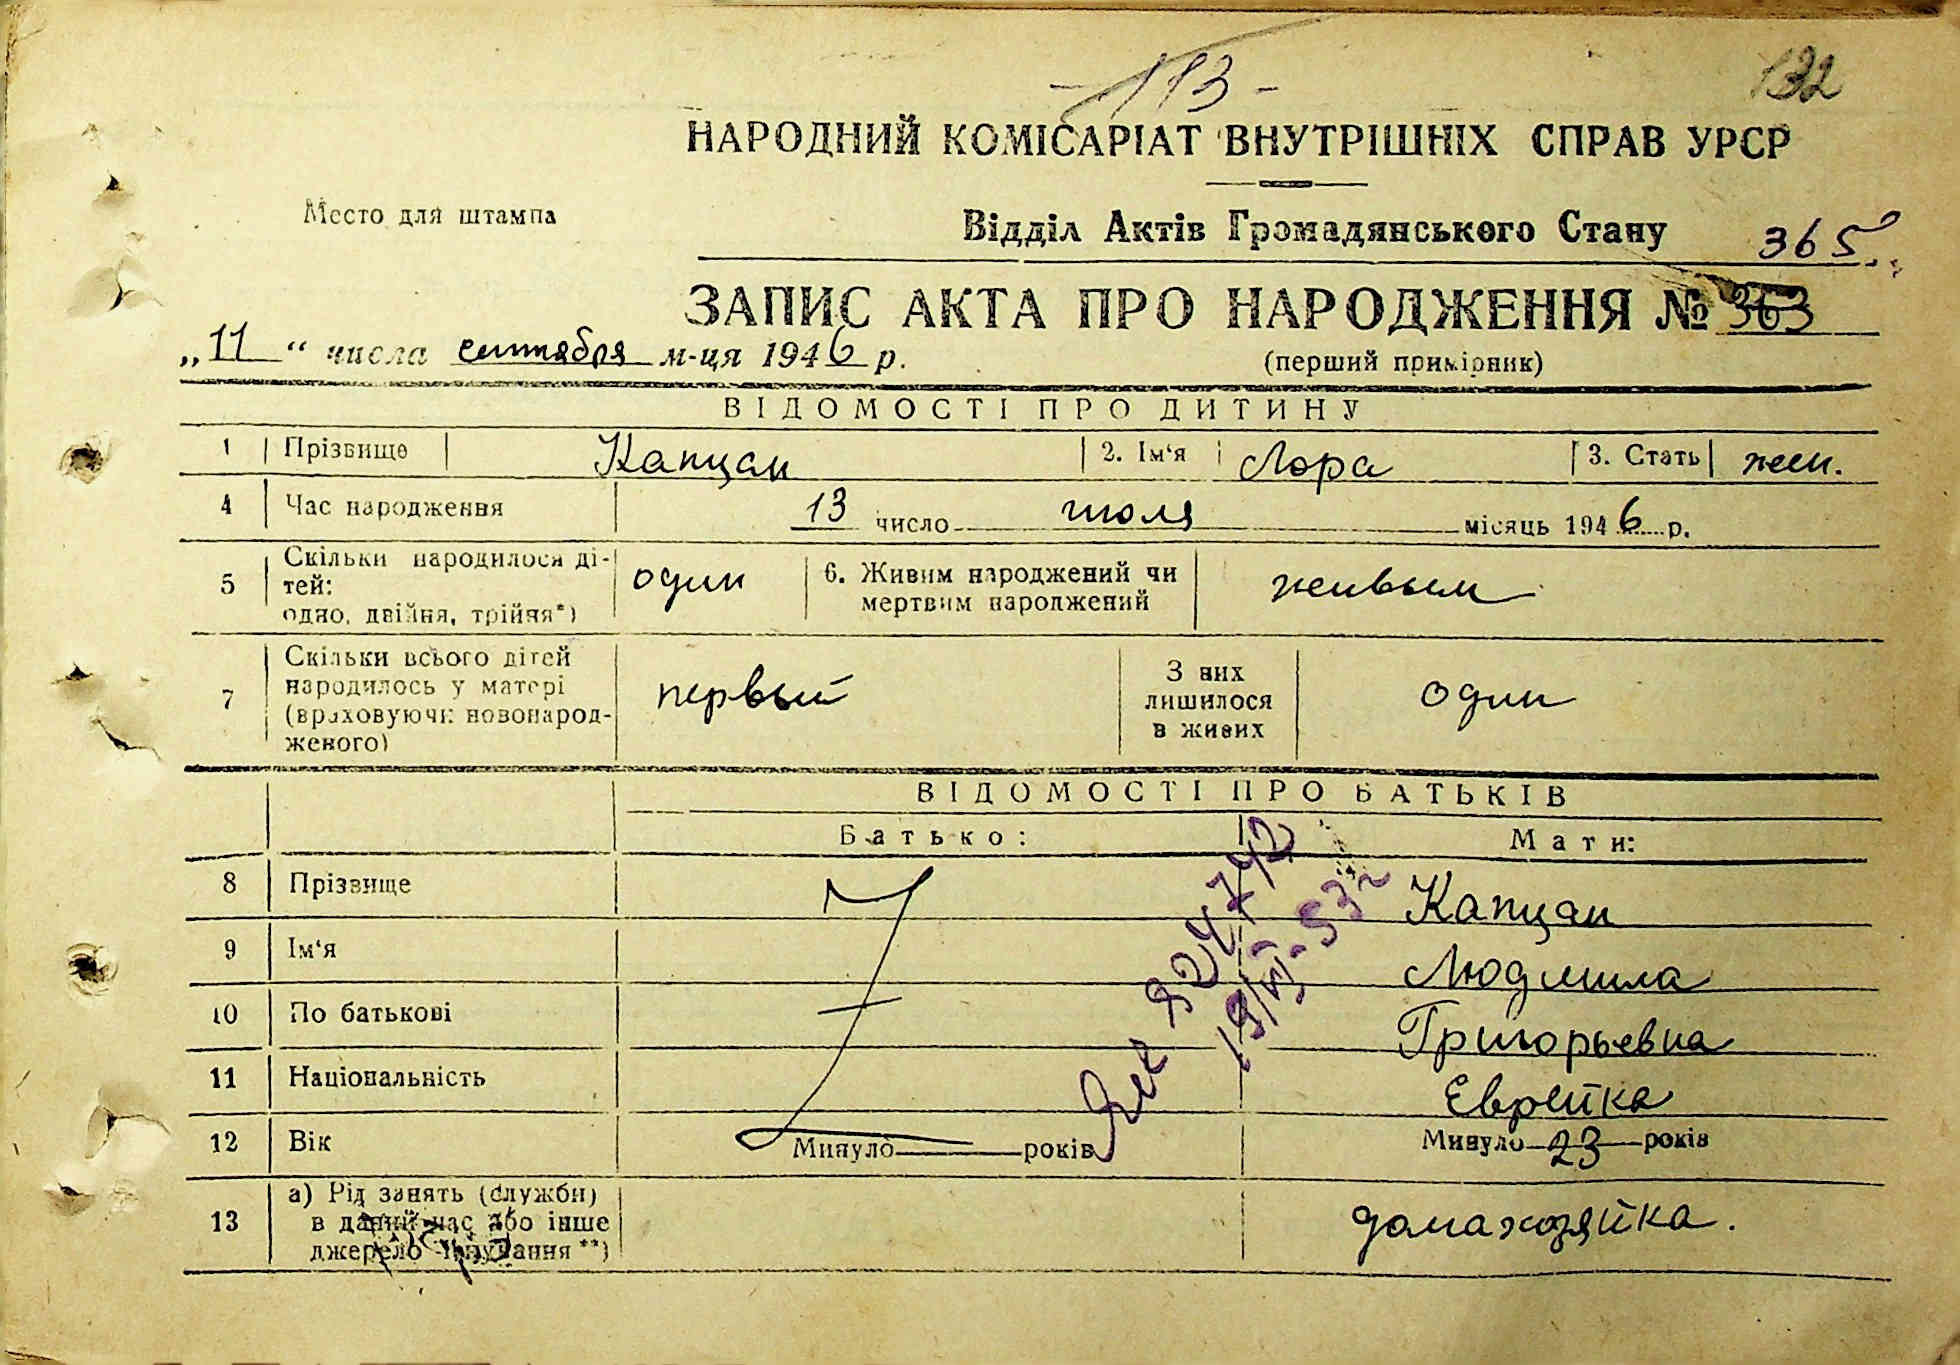 - 113 -
132
НАРОДНИЙ КОМІСАРІАТ ВНУТРІШНІХ СПРАВ УРСР
Место для штампа
Відділ Актів Громадянського Стану
365
ЗАПИС АКТА ПРО НАРОДЖЕННЯ № 363
„11“ числа сентября м-ця 1946 р.
(перший примірник)
ВІДОМОСТІ ПРО ДИТИНУ
1 Прізвище Капцан 2. Ім‘я Лора 3. Стать жен.
4 Час народження 13 число июля місяць 1946 р.
5 Скільки народилося ді-
тей:
одно, двійня, трійня*)
один
6. Живим народжений чи
мертвим народжений
живым
7 Скільки всього дітей
народилось у матері
(враховуючи новонарод-
женого)
первый
З них
лишилося
в живих
один
ВІДОМОСТІ ПРО БАТЬКІВ
Батько: Мати:
8 Прізвище Капцан
9 Ім‘я Людмила
10 По батькові Григорьевна
11 Національність Еврейка
12 Вік Минуло років Минуло 23 років
13 а) Рід занять (служби)
в даний час або інше
джерело існування **)
домахозяйка.